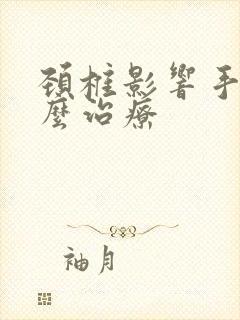 頚椎影響手
麼治療
袖月